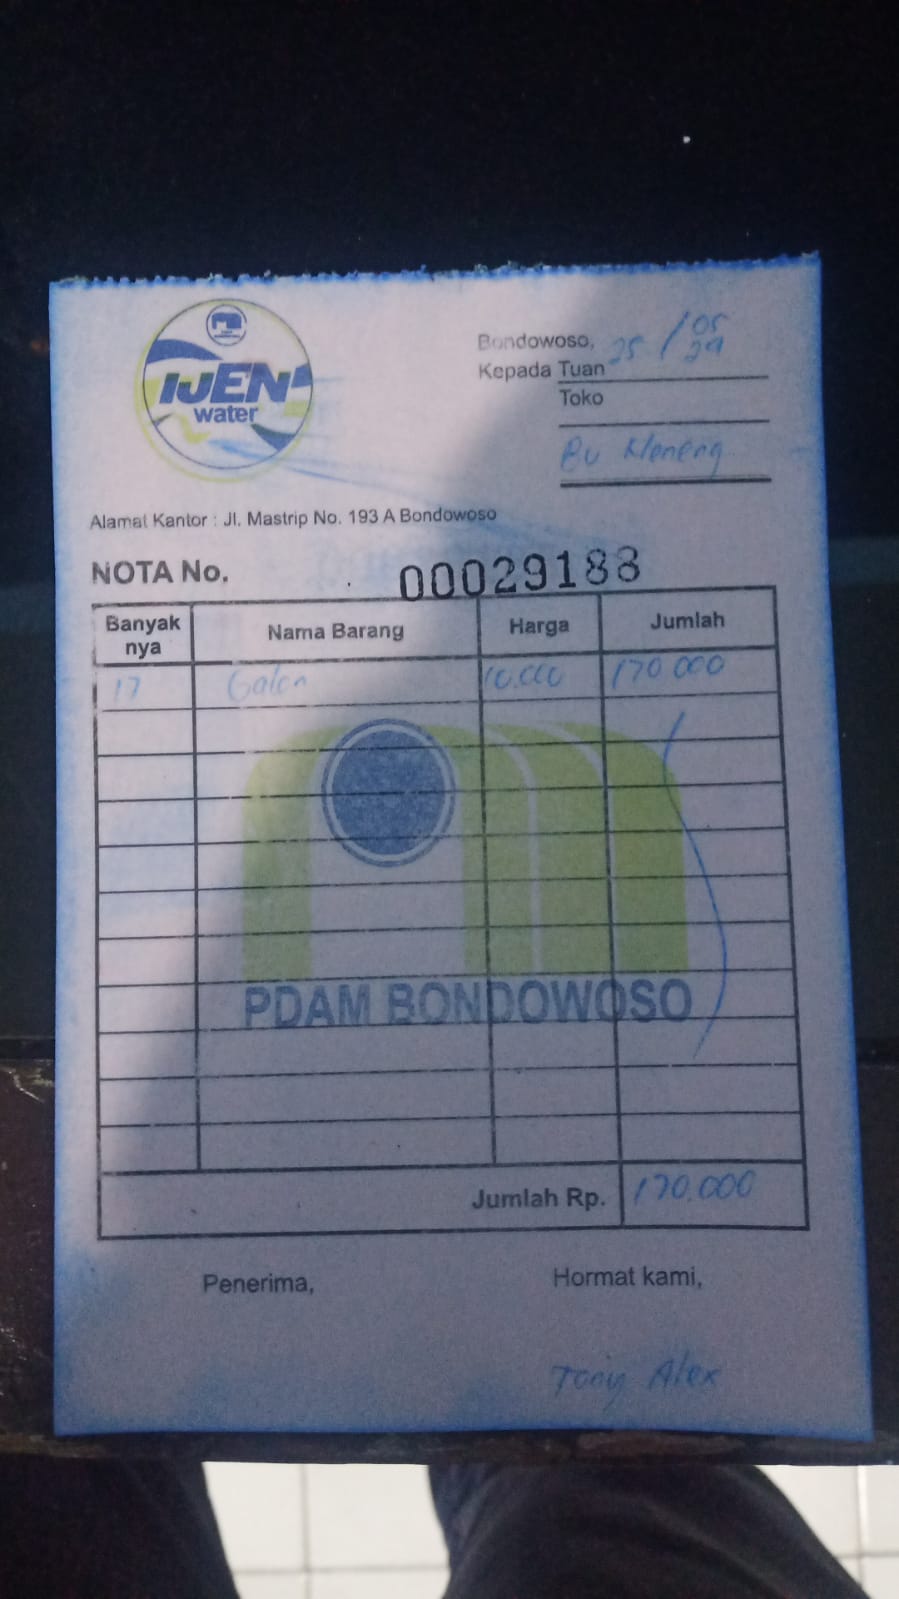 IJEN
water
Bondowoso, 25 / 05
Kepada Tuan
Toko
Bu Kleneng
Alamat Kantor : Jl. Mastrip No. 193 A Bondowoso
NOTA No. 00029188
Banyak nya Nama Barang Harga Jumlah
17 Galon 10.000 170 000
PDAM BONDOWOSO
Jumlah Rp. 170.000
Penerima, Hormat kami,
Tony Alex